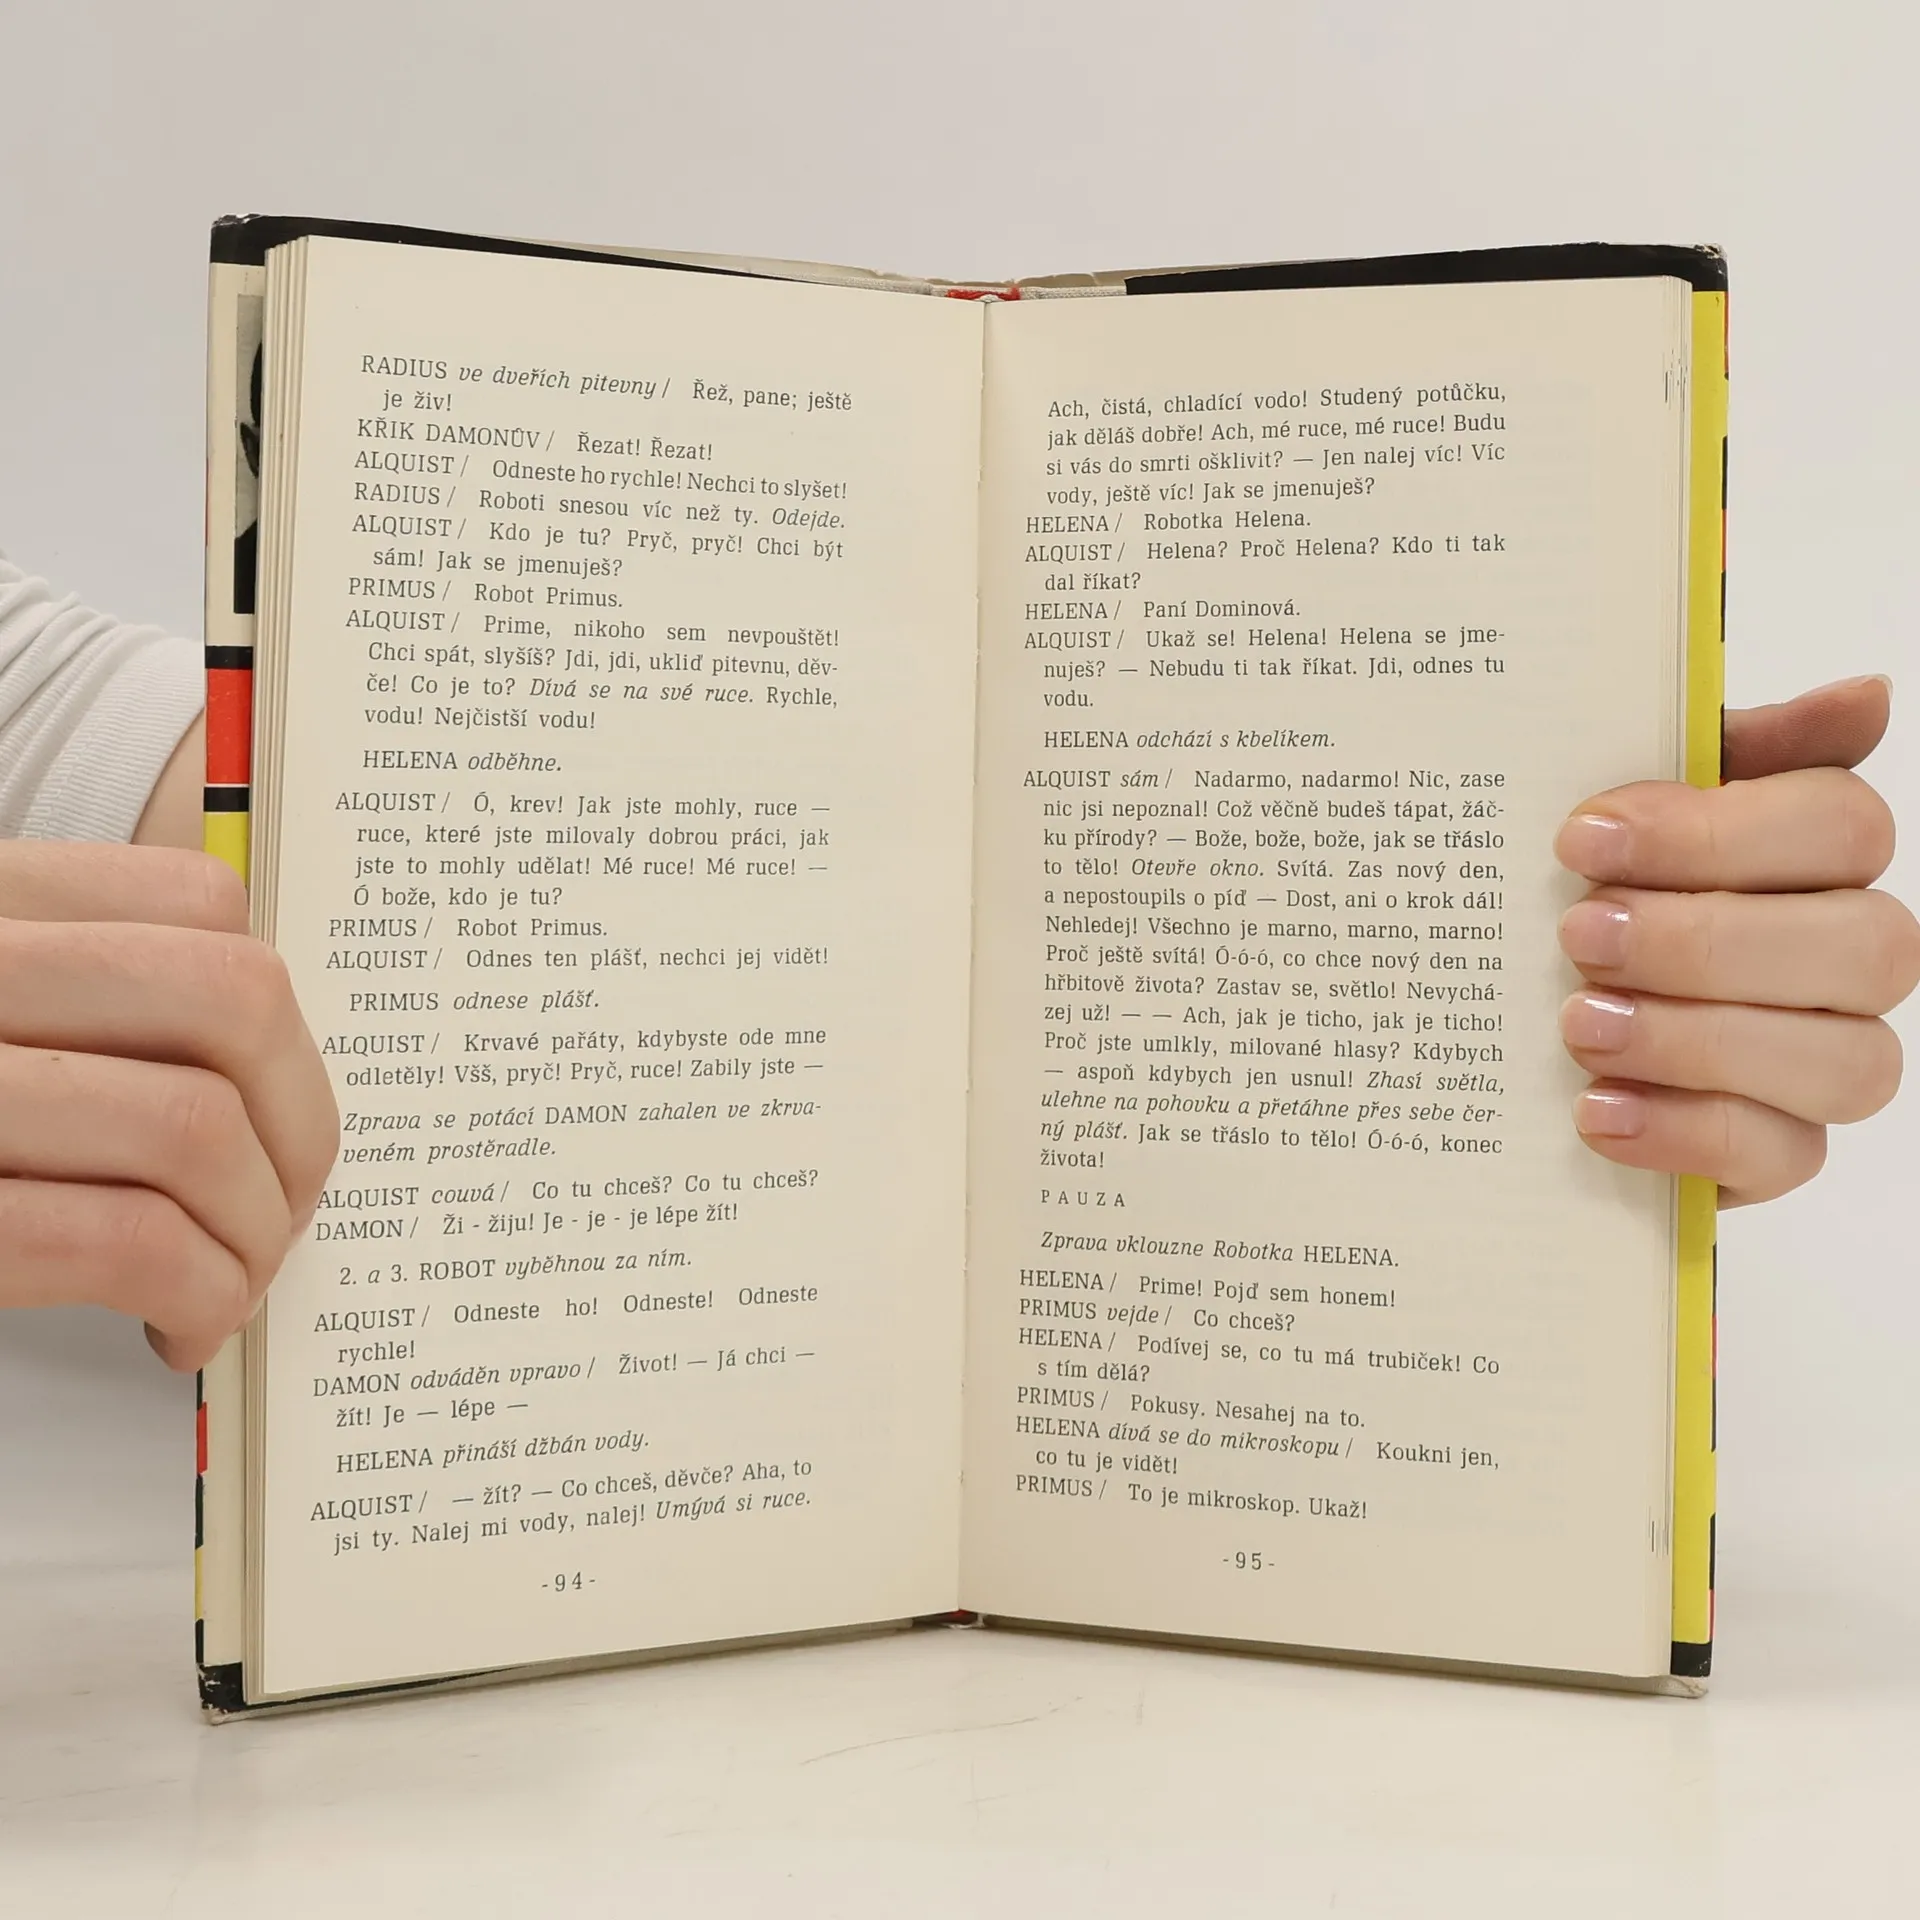 RADIUS ve dveřích pitevny / Řež, pane; ještě
je živ!
KŘIK DAMONŮV / Řezat! Řezat!
ALQUIST / Odneste ho rychle! Nechci to slyšet!
RADIUS / Roboti snesou víc než ty. Odejde.
ALQUIST / Kdo je tu? Pryč, pryč! Chci být
sám! Jak se jmenuješ?
PRIMUS / Robot Primus.
ALQUIST / Prime, nikoho sem nevpouštět!
Chci spát, slyšíš? Jdi, jdi, ukliď pitevnu, děv-
če! Co je to? Dívá se na své ruce. Rychle,
vodu! Nejčistší vodu!
HELENA odběhne.
ALQUIST / Ó, krev! Jak jste mohly, ruce —
ruce, které jste milovaly dobrou práci, jak
jste to mohly udělat! Mé ruce! Mé ruce! —
Ó bože, kdo je tu?
PRIMUS / Robot Primus.
ALQUIST / Odnes ten plášť, nechci jej vidět!
PRIMUS odnese plášť.
ALQUIST / Krvavé pařáty, kdybyste ode mne
odletěly! Všš, pryč! Pryč, ruce! Zabily jste —
Zprava se potácí DAMON zahalen ve zkrva-
veném prostěradle.
ALQUIST couvá / Co tu chceš? Co tu chceš?
DAMON / Ži - žiju! Je - je - je lépe žít!
2. a 3. ROBOT vyběhnou za ním.
ALQUIST / Odneste ho! Odneste! Odneste
rychle!
DAMON odváděn vpravo / Život! — Já chci —
žít! Je — lépe —
HELENA přináší džbán vody.
ALQUIST / — žít? — Co chceš, děvče? Aha, to
jsi ty. Nalej mi vody, nalej! Umývá si ruce.
- 94 -
Ach, čistá, chladící vodo! Studený potůčku,
jak děláš dobře! Ach, mé ruce, mé ruce! Budu
si vás do smrti ošklivit? — Jen nalej víc! Víc
vody, ještě víc! Jak se jmenuješ?
HELENA / Robotka Helena.
ALQUIST / Helena? Proč Helena? Kdo ti tak
dal říkat?
HELENA / Paní Dominová.
ALQUIST / Ukaž se! Helena! Helena se jme-
nuješ? — Nebudu ti tak říkat. Jdi, odnes tu
vodu.
HELENA odchází s kbelíkem.
ALQUIST sám / Nadarmo, nadarmo! Nic, zase
nic jsi nepoznal! Což věčně budeš tápat, žáč-
ku přírody? — Bože, bože, bože, jak se třáslo
to tělo! Otevře okno. Svítá. Zas nový den,
a nepostoupils o píď — Dost, ani o krok dál!
Nehledej! Všechno je marno, marno, marno!
Proč ještě svítá! Ó-ó-ó, co chce nový den na
hřbitově života? Zastav se, světlo! Nevychá-
zej už! — — Ach, jak je ticho, jak je ticho!
Proč jste umlkly, milované hlasy? Kdybych
— aspoň kdybych jen usnul! Zhasí světla,
ulehne na pohovku a přetáhne přes sebe čer-
ný plášť. Jak se třáslo to tělo! Ó-ó-ó, konec
života!
PAUZA
Zprava vklouzne Robotka HELENA.
HELENA / Prime! Pojď sem honem!
PRIMUS vejde / Co chceš?
HELENA / Podívej se, co tu má trubiček! Co
s tím dělá?
PRIMUS / Pokusy. Nesahej na to.
HELENA dívá se do mikroskopu / Koukni jen,
co tu je vidět!
PRIMUS / To je mikroskop. Ukaž!
- 95 -